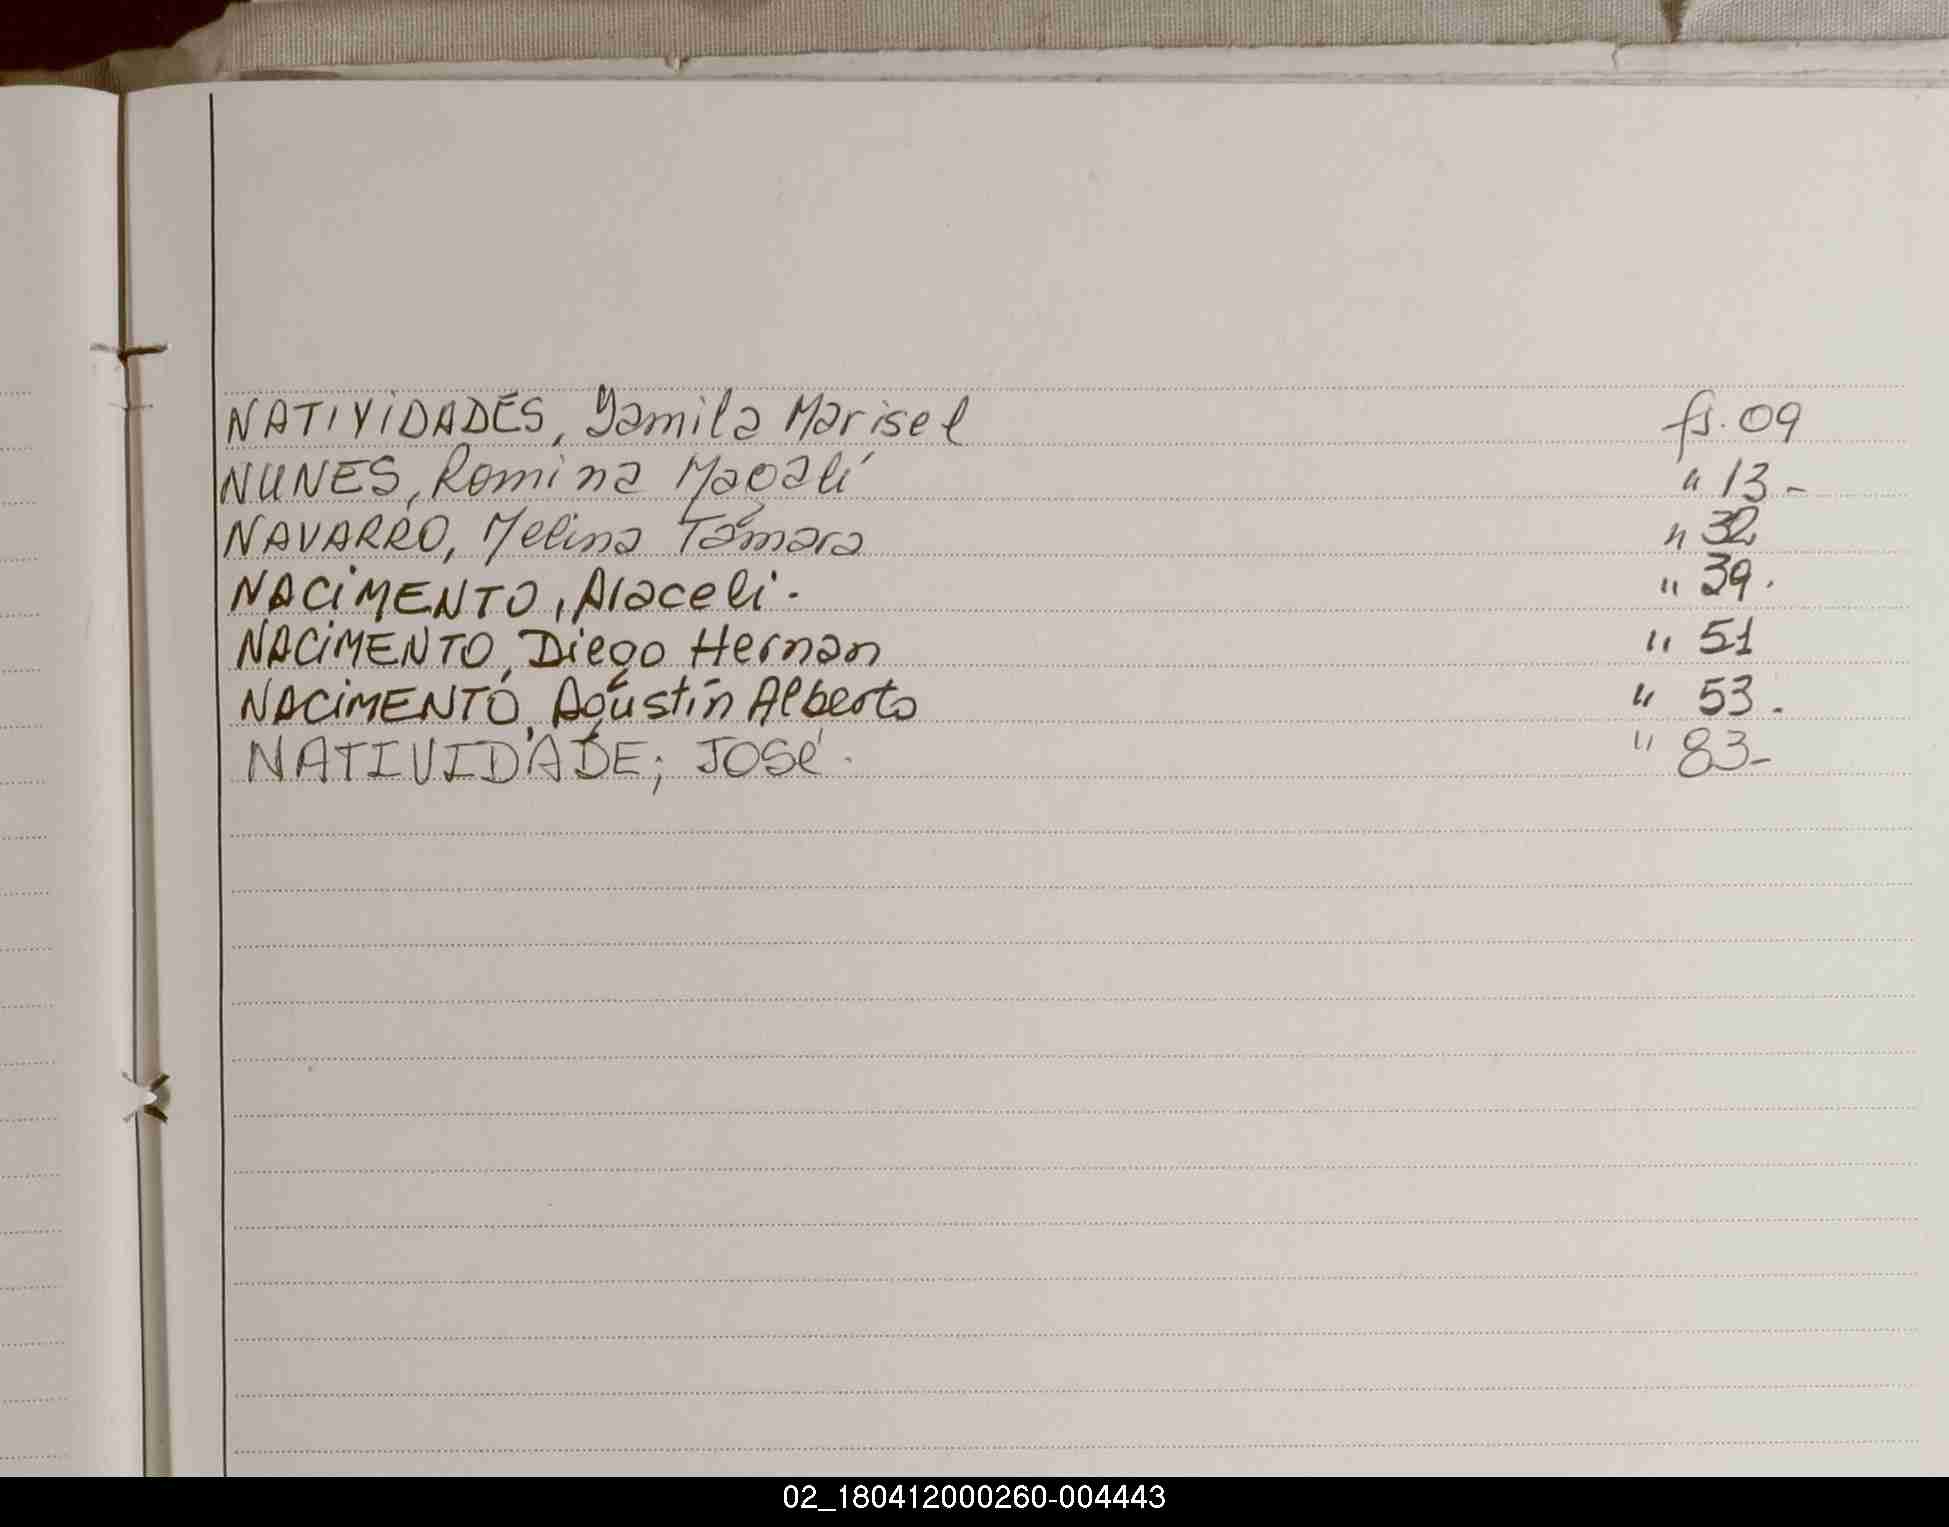 NATIVIDADES, Yamila Marisel fs. 09
NUNES, Romina Magalí " 13-
NAVARRO, Melina Tamara " 32
NACIMENTO, Araceli. " 39.
NACIMENTO, Diego Hernan " 51
NACIMENTO, Agustín Alberto " 53.
NATIVIDADE; José. " 83-
02_180412000260-004443